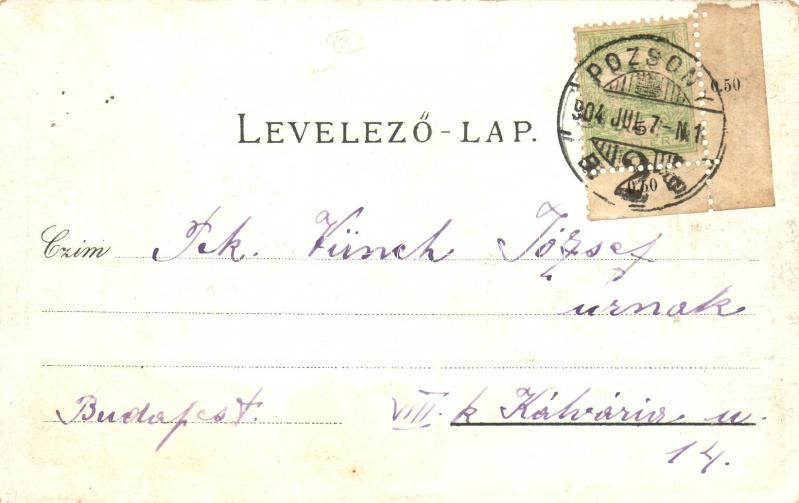 POZSONY
904 JUL 7 - N 1
0.50
0.50
LEVELEZŐ-LAP.
Czim Tek. Künch József
urnak
Budapest. VIII. k Kálvária u.
14.